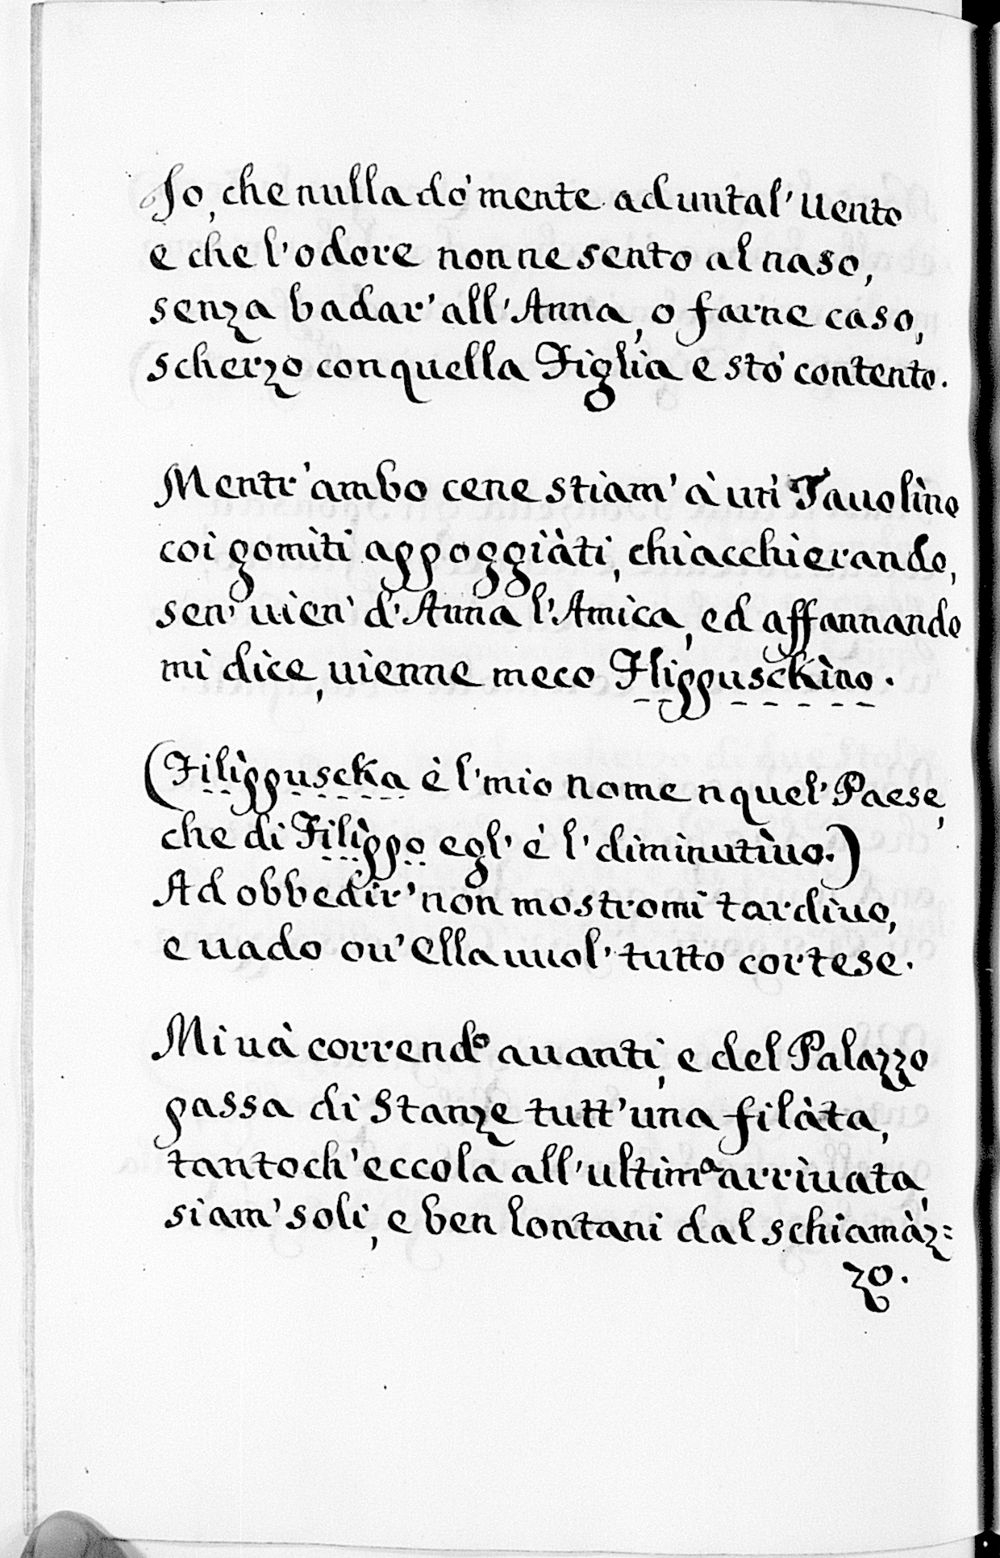 Io, che nulla do' mente ad un tal' uento
e che l'odore non ne sento al naso,
senza badar' all'Anna, o farne caso,
scherzo con quella Figlia e sto' contento.
Mentr'ambo cene stiam' à un' Tauolìno
coi gomìti appoggiàti, chiacchierando,
sen' uien' d'Anna l'Amica, ed affannando
mi dice, uienne meco Flippuschìno.
(Filìppuscka è l'mio nome n quel' Paese,
che di Filìppo egl' è l' diminutìuo.)
Ad obbedir' non mostromi tardìuo,
e uado ou'ella uuol' tutto cortese.
Mi uà correndo auanti, e del Palazzo
passa di Stanze tutt'una filàta,
tantoch'eccola all'ultima arrìuata,
siam' soli, e ben lontani dal schiamàz=
zo.